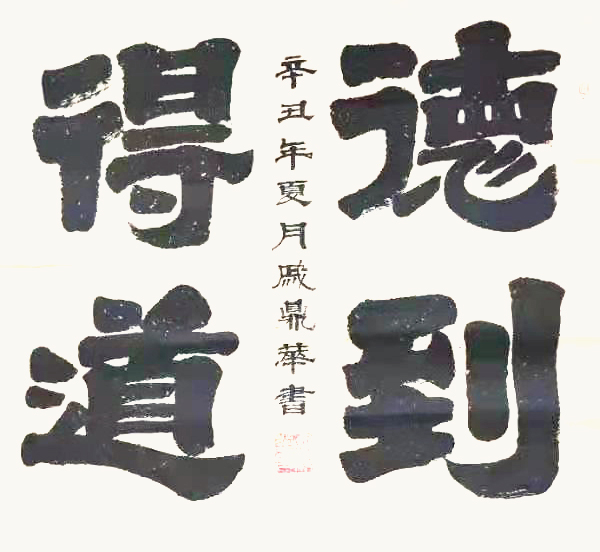 德到
得道
辛丑年夏月戚鼎華書